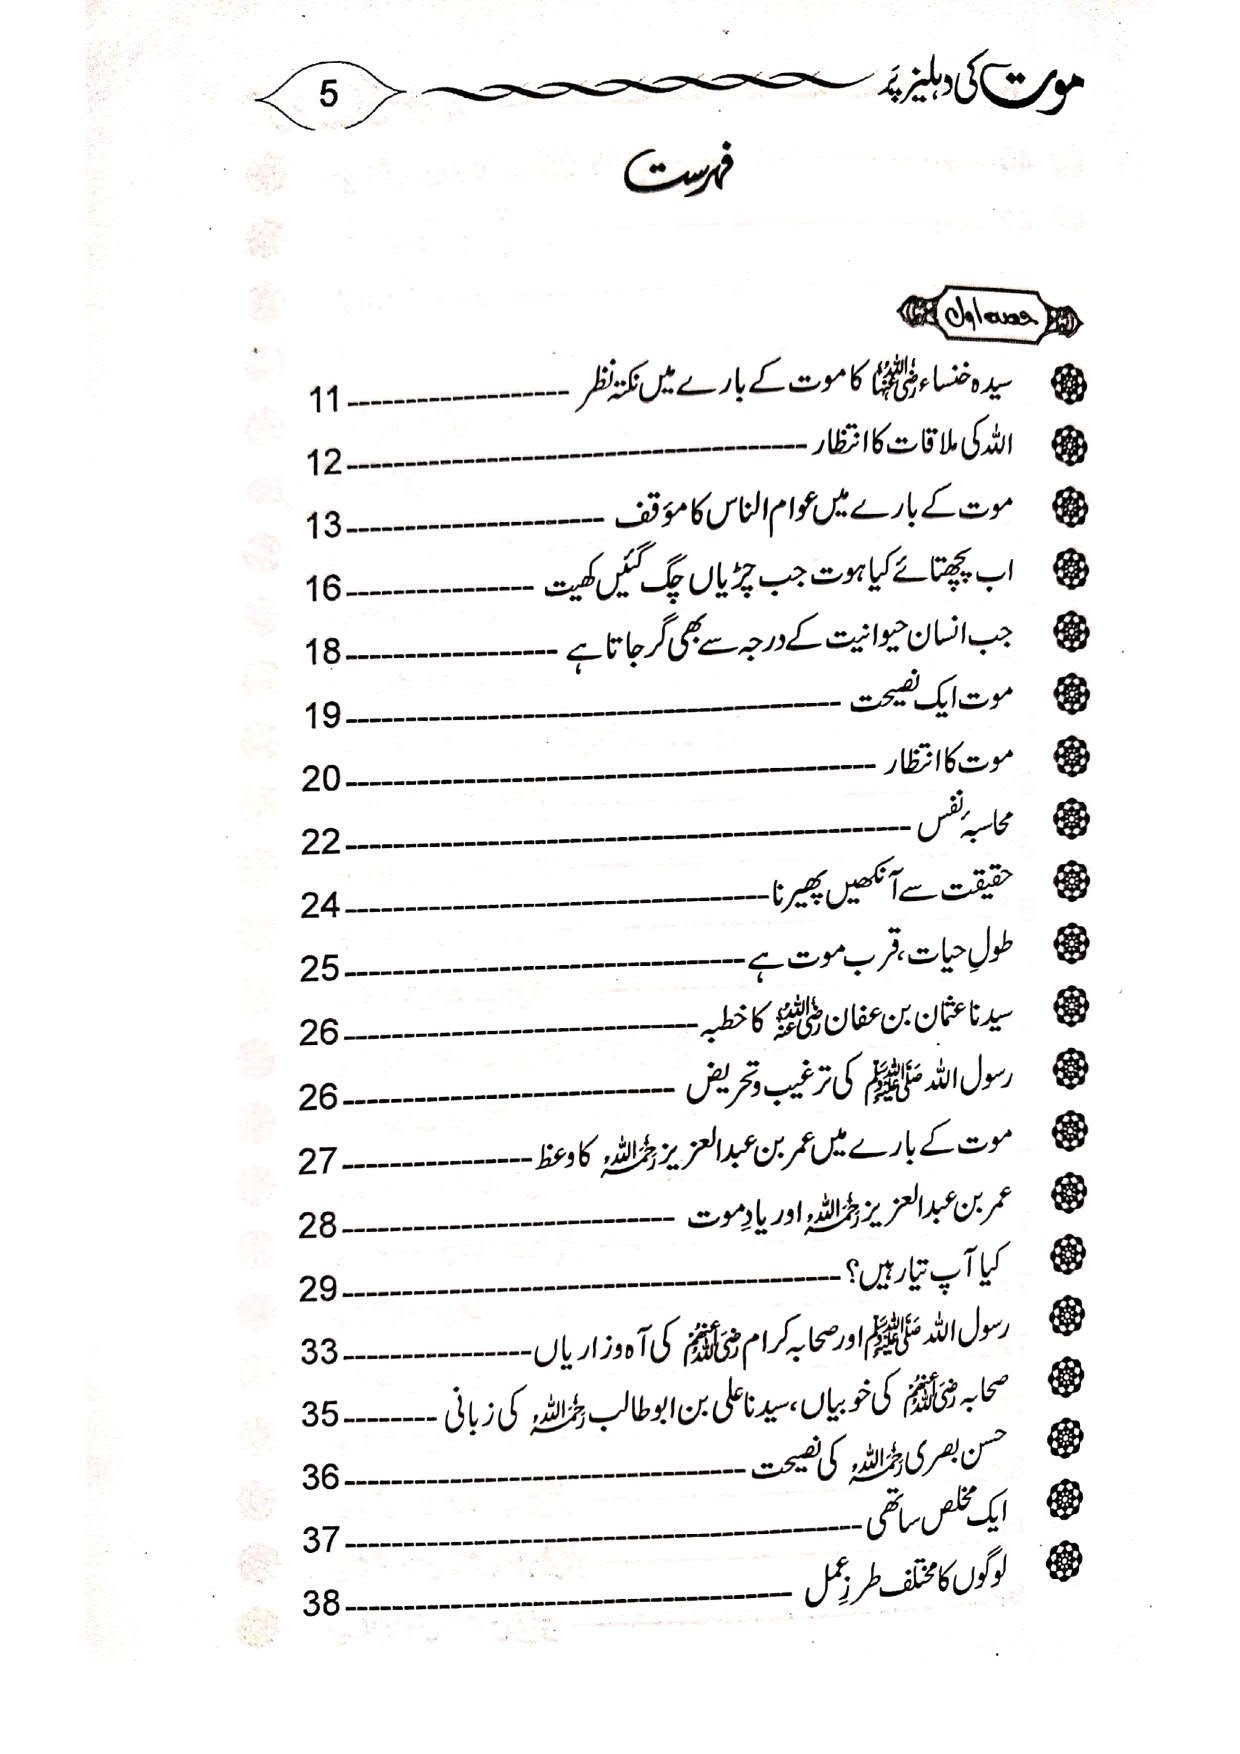 موت کی دہلیز پَر 5
فہرست
حصہ اول
سیدہ خنساء رضی اللہ عنہا کا موت کے بارے میں نکتۂ نظر ---------- 11
اللہ کی ملاقات کا انتظار ---------- 12
موت کے بارے میں عوام الناس کا مؤقف ---------- 13
اب پچھتائے کیا ہوت جب چڑیاں چگ گئیں کھیت ---------- 16
جب انسان حیوانیت کے درجہ سے بھی گر جاتا ہے ---------- 18
موت ایک نصیحت ---------- 19
موت کا انتظار ---------- 20
محاسبۂ نفس ---------- 22
حقیقت سے آنکھیں پھیرنا ---------- 24
طولِ حیات، قرب موت ہے ---------- 25
سیدنا عثمان بن عفان رضی اللہ عنہ کا خطبہ ---------- 26
رسول اللہ ﷺ کی ترغیب و تحریض ---------- 26
موت کے بارے میں عمر بن عبدالعزیز رحمہ اللہ کا وعظ ---------- 27
عمر بن عبدالعزیز رحمہ اللہ اور یادِ موت ---------- 28
کیا آپ تیار ہیں؟ ---------- 29
رسول اللہ ﷺ اور صحابہ کرام رضی اللہ عنہم کی آہ وزاریاں ---------- 33
صحابہ رضی اللہ عنہم کی خوبیاں، سیدنا علی بن ابو طالب رحمہ اللہ کی زبانی ---------- 35
حسن بصری رحمہ اللہ کی نصیحت ---------- 36
ایک مخلص ساتھی ---------- 37
لوگوں کا مختلف طرزِ عمل ---------- 38